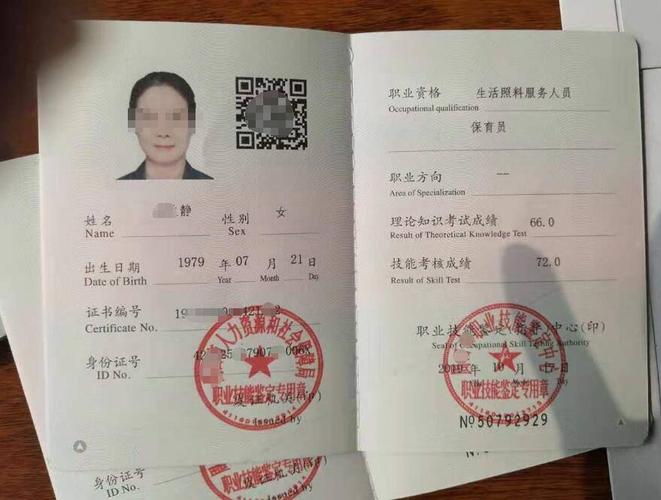 静
姓名 性别 女
Name Sex
出生日期 1979 年 07 月 21 日
Date of Birth Year Month Day
证书编号
Certificate No.
身份证号
ID No.
人力资源和社会保障局
职业技能鉴定专用章
发证机关(印)
Issued by
身份证号
ID No.
职业资格 生活照料服务人员
Occupational qualification
保育员
职业方向 --
Area of Specialization
理论知识考试成绩 66.0
Result of Theoretical Knowledge Test
技能考核成绩 72.0
Result of Skill Test
职业技能鉴定(指导)中心(印)
Seal of Occupational Skill Testing Authority
年 10 月 日
职业技能鉴定专用章
No 50792929